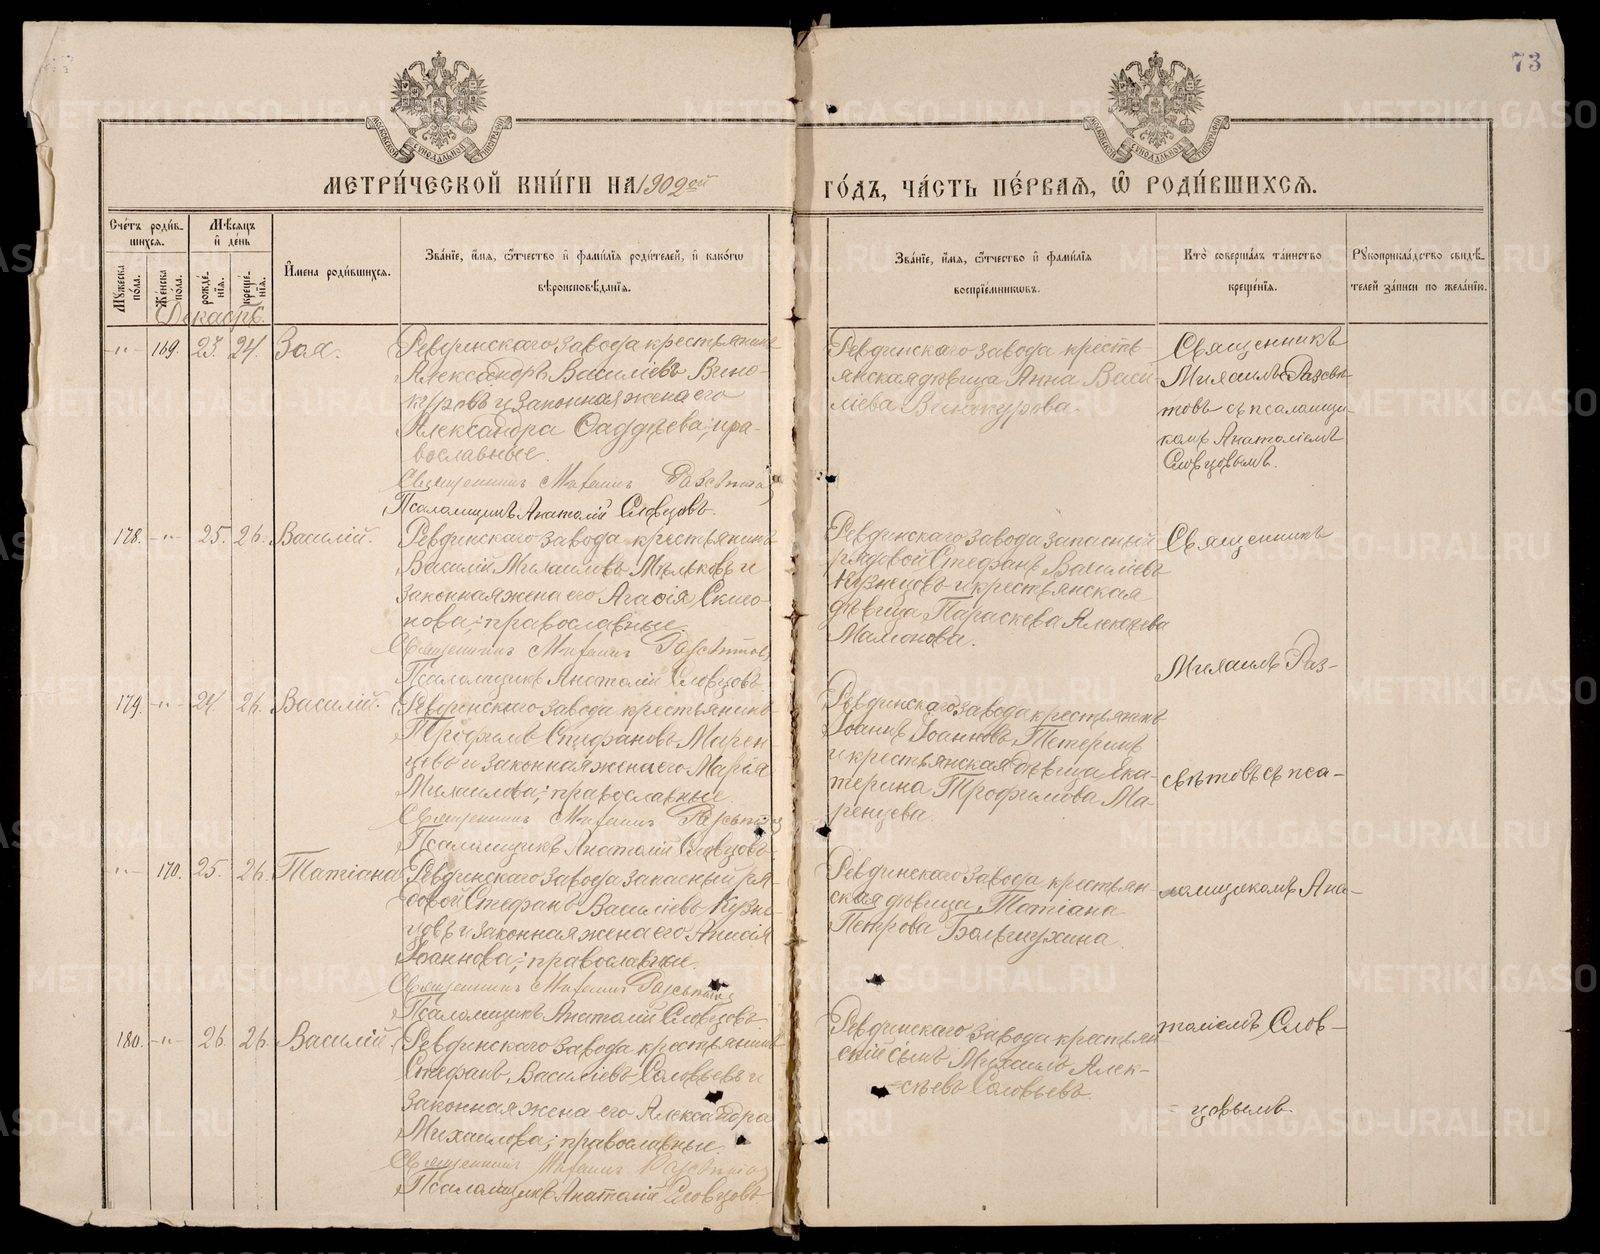 73
МОСКОВСКОЙ СѴНОДАЛЬНОЙ ТИПОГРАФІИ
МОСКОВСКОЙ СѴНОДАЛЬНОЙ ТИПОГРАФІИ
МЕТРИ́ЧЕСКОЙ КНИ́ГИ НА 1902ой ГО́ДЪ, ЧА́СТЬ ПЕ́РВАѦ, Ѽ РОДИ́ВШИХСѦ.
Сче́тъ роди́в-
шихсѧ.
Мѣ́сѧцъ
и҆ де́нь
Мꙋ́жеска
по́ла.
Же́нска
по́ла.
рожде́-
нїѧ.
креще́-
нїѧ.
И҆мена роди́вшихсѧ.
Зва́нїе, и҆́мѧ, ѻ҆́тчество и҆ фами́лїѧ роди́телей, и҆ како́гѡ
вѣроисповѣ́данїѧ.
Зва́нїе, и҆́мѧ, ѻ҆́тчество и҆ фами́лїѧ
воспрїе́мникѡвъ.
Кто̀ соверша́лъ та́инство
креще́нїѧ.
Рꙋкоприкла́дство свидѣ́-
телей за́писи по жела́нїю.
Декабрь.
-"- 169. 23. 24. Зоя.
Ревдинскаго завода крестьянинъ
Александръ Василіевъ Вино-
куровъ и законная жена его
Александра Фаддѣева; пра-
вославные.
Священникъ Михаилъ Разсвѣтовъ
Псаломщикъ Анатолій Словцовъ.
Ревдинскаго завода кресть-
янская дѣвица Анна Васи-
ліева Винокурова.
Священникъ
Михаилъ Разсвѣ-
товъ съ псаломщи-
комъ Анатоліемъ
Словцовымъ.
178. -"- 25. 26. Василій.
Ревдинскаго завода крестьянинъ
Василій Михаиловъ Мѣльковъ и
законная жена его Агаѳія
православные.
Священникъ Михаилъ Разсвѣтовъ
Псаломщикъ Анатолій Словцовъ
Ревдинскаго завода запасный
рядовой Стефанъ Василіевъ
Кузнецовъ и крестьянская
дѣвица Параскева Алексѣева
Мамонова.
Священникъ
Михаилъ Раз-
179. -"- 24. 26. Василій.
Ревдинскаго завода крестьянинъ
Трофимъ Стефановъ Марен-
цовъ и законная жена его Марія
Михаилова; православные.
Священникъ Михаилъ Разсвѣтовъ
Псаломщикъ Анатолій Словцовъ
Ревдинскаго завода крестьянинъ
Іоаннъ Іоанновъ Тетеринъ
и крестьянская дѣвица Ека-
терина Трофимова Ма-
ренцева.
свѣтовъ съ пса-
-"- 170. 25. 26. Татіана
Ревдинскаго завода запасный ря-
довой Стефанъ Василіевъ Кузне-
цовъ и законная жена его Анисія
Іоаннова; православные.
Священникъ Михаилъ Разсвѣтовъ
Псаломщикъ Анатолій Словцовъ
Ревдинскаго завода крестьян-
ская дѣвица Татіана
Петрова Большухина.
ломщикомъ Ана-
180. -"- 26. 26. Василій.
Ревдинскаго завода крестьянинъ
Стефанъ Василіевъ Соловьевъ и
законная жена его Александра
Михаилова; православные.
Священникъ Михаилъ Разсвѣтовъ
Псаломщикъ Анатолій Словцовъ
Ревдинскаго завода крестьян-
скій сынъ Михаилъ Алек-
сѣевъ Соловьевъ.
толіемъ Слов-
цовымъ.
METRIKI.GASO-URAL.RU